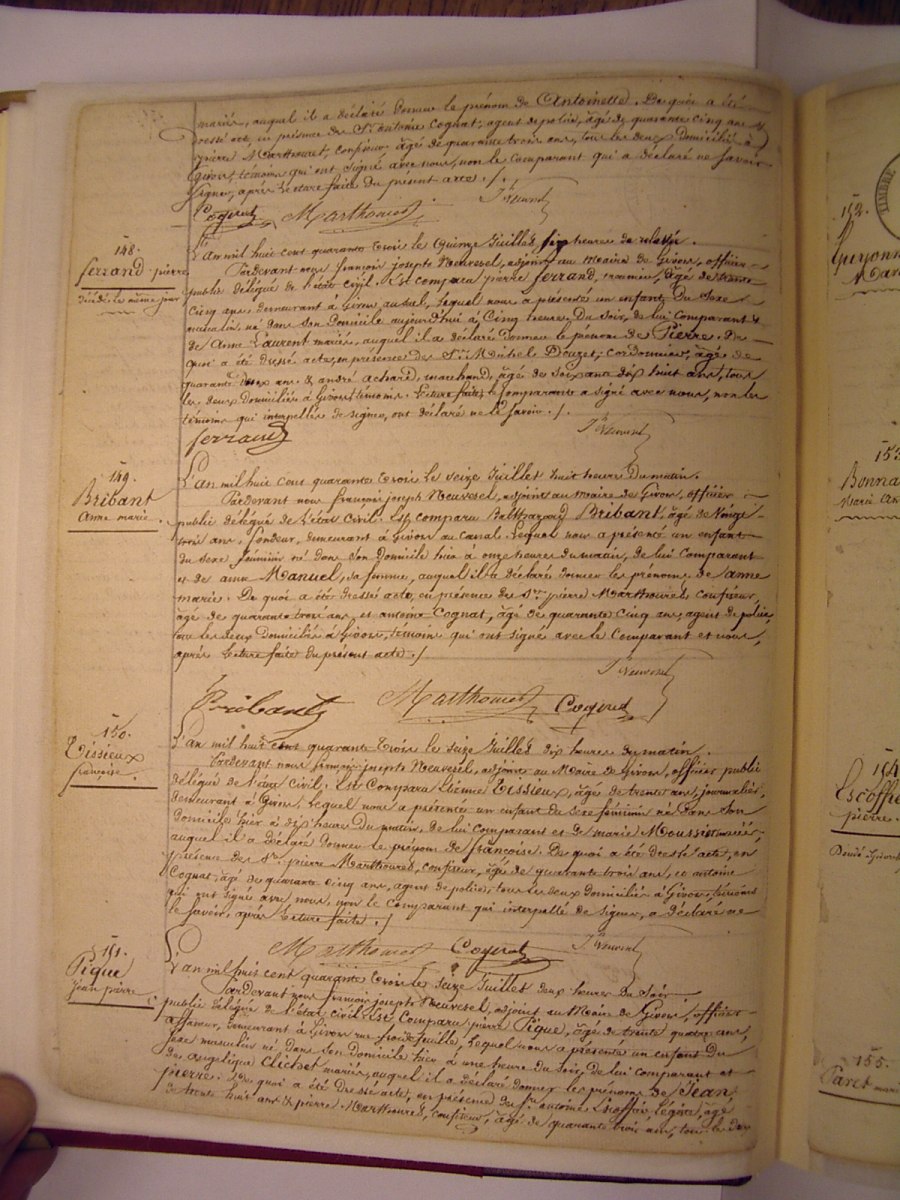 mariés, auquel il a déclaré donner le prénom de Antoinette. De quoi a été
dressé acte, en présence de Srs antoine Cognat, agent de police, âgé de quarante cinq ans &
pierre Marthouret, confiseur âgé de quarante trois ans, tous les deux domiciliés à
Givors, témoins qui ont signé avec nous, non le Comparant qui a déclaré ne savoir
signer, après lecture faite du présent acte ./.
Cognat Marthouret
148.
ferrand pierre
décédé le même jour
L'an mil huit cent quarante trois le Quinze Juillet, six heures de relevée.
Pardevant nous françois joseph Neuvesel, adjoint au maire de Givors, officier
public délégué de l'état civil. Est comparu pierre ferrand, âgé de trente
Cinq ans demeurant à Givors au sal, lequel nous a présenté un enfant du sexe
masculin né dans son domicile aujourd'hui à Cinq heures du soir, de lui comparant &
de Anne Laurent mariés, auquel il a déclaré donner le prénom de Pierre. De
quoi a été dressé acte, en présence des Srs Michel Douzet, cordonnier, âgé de
quarante ans & andré achard, marchand, âgé de soixante dix huit ans, tous
les deux domiciliés à Givors, témoins. Lecture faite, le comparant a signé avec nous, non les
témoins qui interpellés de signer, ont déclaré ne le savoir ./.
ferrand
149.
Bribant
anne marie.
L'an mil huit cent quarante trois le seize Juillet huit heures du matin.
Pardevant nous françois joseph Neuvesel, adjoint au maire de Givors, officier
public délégué de l'état Civil. Est comparu Balthazard Bribant, âgé de Vingt
trois ans, fondeur, demeurant à Givors au Canal. Lequel nous a présenté un enfant
du sexe féminin né dans son domicile hier à onze heures du matin, de lui Comparant
et de anne Manuel, sa femme, auquel il a déclaré donner les prénoms de anne
marie. De quoi a été dressé acte, en présence des Srs pierre Marthouret confiseur,
âgé de quarante trois ans, et antoine Cognat, âgé de quarante Cinq ans, agent de police,
tous les deux domiciliés à Givors, témoins qui ont signé avec le Comparant et nous,
après lecture faite du présent acte ./.
Bribant Marthouret Cognat
150.
Tissieux
françoise.
L'an mil huit cent quarante trois le seize Juillet dix heures du matin.
Pardevant nous françois joseph Neuvesel, adjoint au Maire de Givors, officier public
délégué de l'état Civil. Est Comparu Etienne Tissieux, âgé de trente ans, journalier,
demeurant à Givors. Lequel nous a présenté un enfant du sexe féminin né dans son
domicile hier à dix heures du matin, de lui Comparant et de marie Moussier mariés
auquel il a déclaré donner le prénom de françoise. De quoi a été dressé acte, en
présence des Srs pierre Marthouret, confiseur, âgé de quarante trois ans, et antoine
Cognat, âgé de quarante cinq ans, agent de police, tous les deux domiciliés à Givors, témoins
qui ont signé avec nous, non le Comparant qui interpellé de signer, a déclaré ne
le savoir, après lecture faite ./.
Marthouret Cognat
151.
Pigue
Jean pierre
L'an mil huit cent quarante trois le seize Juillet deux heures du soir
Pardevant nous françois joseph Neuvesel, adjoint au Maire de Givors, officier
public délégué de l'état civil. Est Comparu pierre Pigue, âgé de trente quatre ans,
demeurant à Givors rue lequel nous a présenté un enfant du
sexe masculin né dans son domicile hier à une heure du soir, de lui comparant et
de angélique Clichet mariés, auquel il a déclaré donner les prénoms de Jean
pierre. De quoi a été dressé acte, en présence des Srs antoine Escoffié, âgé
de trente huit ans & pierre Marthouret, confiseur, âgé de quarante trois ans, tous les deux
152.
TIMBRE
153
Bonna
Marie An
154
Escoffié
pierre.
155.
Paret